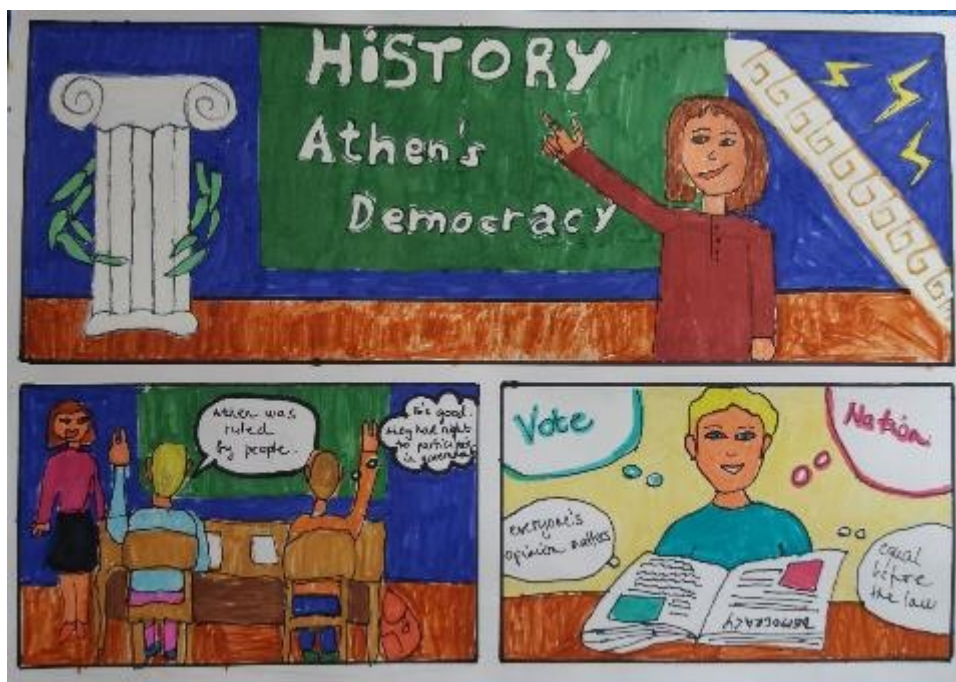 HiSTORY
Athen's
Democracy
Athen was
ruled
by people.
It's good.
they had right
to participate
in government
Vote
Nation
everyone's
opinion matters
equal
before
the law
DEMOCRACY